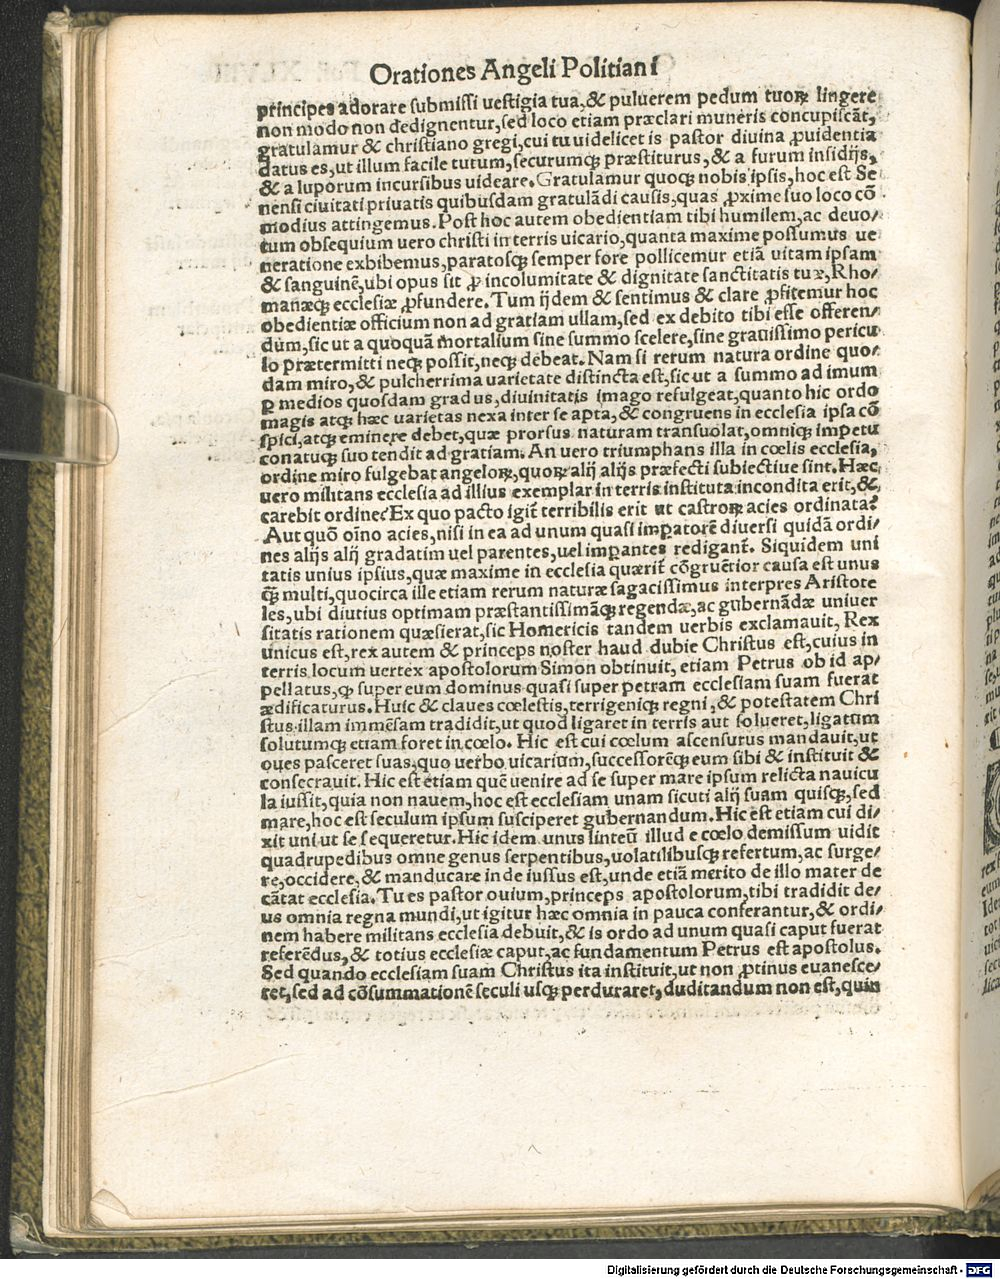 Orationes Angeli Politiani
principes adorare submissi uestigia tua,& puluerem pedum tuoꝝ lingere
non modo non dedignentur,sed loco etiam præclari muneris concupiscãt,
gratulamur & christiano gregi,cui tu uidelicet is pastor diuina ꝓuidentia
datus es,ut illum facile tutum,securumqꝫ præstiturus,& a furum insidijs,
& a luporum incursibus uideare.Gratulamur quoqꝫ nobis ipsis,hoc est Se
nensi ciuitati priuatis quibusdam gratulãdi causis,quas ꝓxime suo loco cõ
modius attingemus.Post hoc autem obedientiam tibi humilem,ac deuo/
tum obsequium uero christi in terris uicario,quanta maxime possumus ue
neratione exhibemus,paratosqꝫ semper fore pollicemur etiã uitam ipsam
& sanguinẽ,ubi opus sit ꝓ incolumitate & dignitate sanctitatis tuæ,Rho/
manæqꝫ ecclesiæ ꝓfundere.Tum ijdem & sentimus & clare ꝓfitemur hoc
obedientiæ officium non ad gratiam ullam,sed ex debito tibi esse offeren/
dum,sic ut a quoquã mortalium sine summo scelere,sine grauissimo pericu
lo prætermitti neqꝫ possit,neqꝫ debeat.Nam si rerum natura ordine quo/
dam miro,& pulcherrima uarietate distincta est,sic ut a summo ad imum
ꝑ medios quosdam gradus,diuinitatis imago refulgeat,quanto hic ordo
magis atqꝫ hæc uarietas nexa inter se apta,& congruens in ecclesia ipsa cõ
spici,atqꝫ eminere debet,quæ prorsus naturam transuolat,omniqꝫ impetu
conatuqꝫ suo tendit ad gratiam.An uero triumphans illa in cœlis ecclesia,
ordine miro fulgebat angeloꝝ,quoꝝ alij alijs præfecti subiectiue sint.Hæc
uero militans ecclesia ad illius exemplar in terris instituta incondita erit,&
carebit ordine?Ex quo pacto igit̃ terribilis erit ut castroꝝ acies ordinata?
Aut quõ oĩno acies,nisi in ea ad unum quasi imꝑatorẽ diuersi quidã ordi/
nes alijs alij gradatim uel parentes,uel imꝑantes redigant̃. Siquidem uni
tatis unius ipsius,quæ maxime in ecclesia quærit̃ cõgruẽtior causa est unus
qꝫ multi,quocirca ille etiam rerum naturæ sagacissimus interpres Aristote
les,ubi diutius optimam præstantissimãqꝫ regendæ,ac gubernãdæ uniuer
sitatis rationem quæsierat,sic Homericis tandem uerbis exclamauit, Rex
unicus est,rex autem & princeps noster haud dubie Christus est,cuius in
terris locum uertex apostolorum Simon obtinuit, etiam Petrus ob id ap/
pellatus,ꝙ super eum dominus quasi super petram ecclesiam suam fuerat
ædificaturus.Huic & claues cœlestis,terrigeniqꝫ regni,& potestatem Chri
stus illam immẽsam tradidit,ut quod ligaret in terris aut solueret,ligatum
solutumqꝫ etiam foret in cœlo. Hic est cui cœlum ascensurus mandauit,ut
oues pasceret suas,quo uerbo uicarium,successorẽqꝫ eum sibi & instituit &
consecrauit. Hic est etiam quẽ uenire ad se super mare ipsum relicta nauicu
la iussit,quia non nauem,hoc est ecclesiam unam sicuti alij suam quisqꝫ,sed
mare,hoc est seculum ipsum susciperet gubernandum.Hic est etiam cui di/
xit uni ut se sequeretur.Hic idem unus linteũ illud e cœlo demissum uidit
quadrupedibus omne genus serpentibus,uolatilibusqꝫ refertum,ac surge/
re,occidere,& manducare inde iussus est,unde etiã merito de illo mater de
cãtat ecclesia.Tu es pastor ouium,princeps apostolorum,tibi tradidit de/
us omnia regna mundi,ut igitur hæc omnia in pauca conferantur,& ordi/
nem habere militans ecclesia debuit,& is ordo ad unum quasi caput fuerat
referẽdus,& totius ecclesiæ caput,ac fundamentum Petrus est apostolus.
Sed quando ecclesiam suam Christus ita instituit,ut non ꝓtinus euanesce/
ret,sed ad cõsummationẽ seculi usqꝫ perduraret,duditandum non est,quin
Digitalisierung gefördert durch die Deutsche Forschungsgemeinschaft - DFG